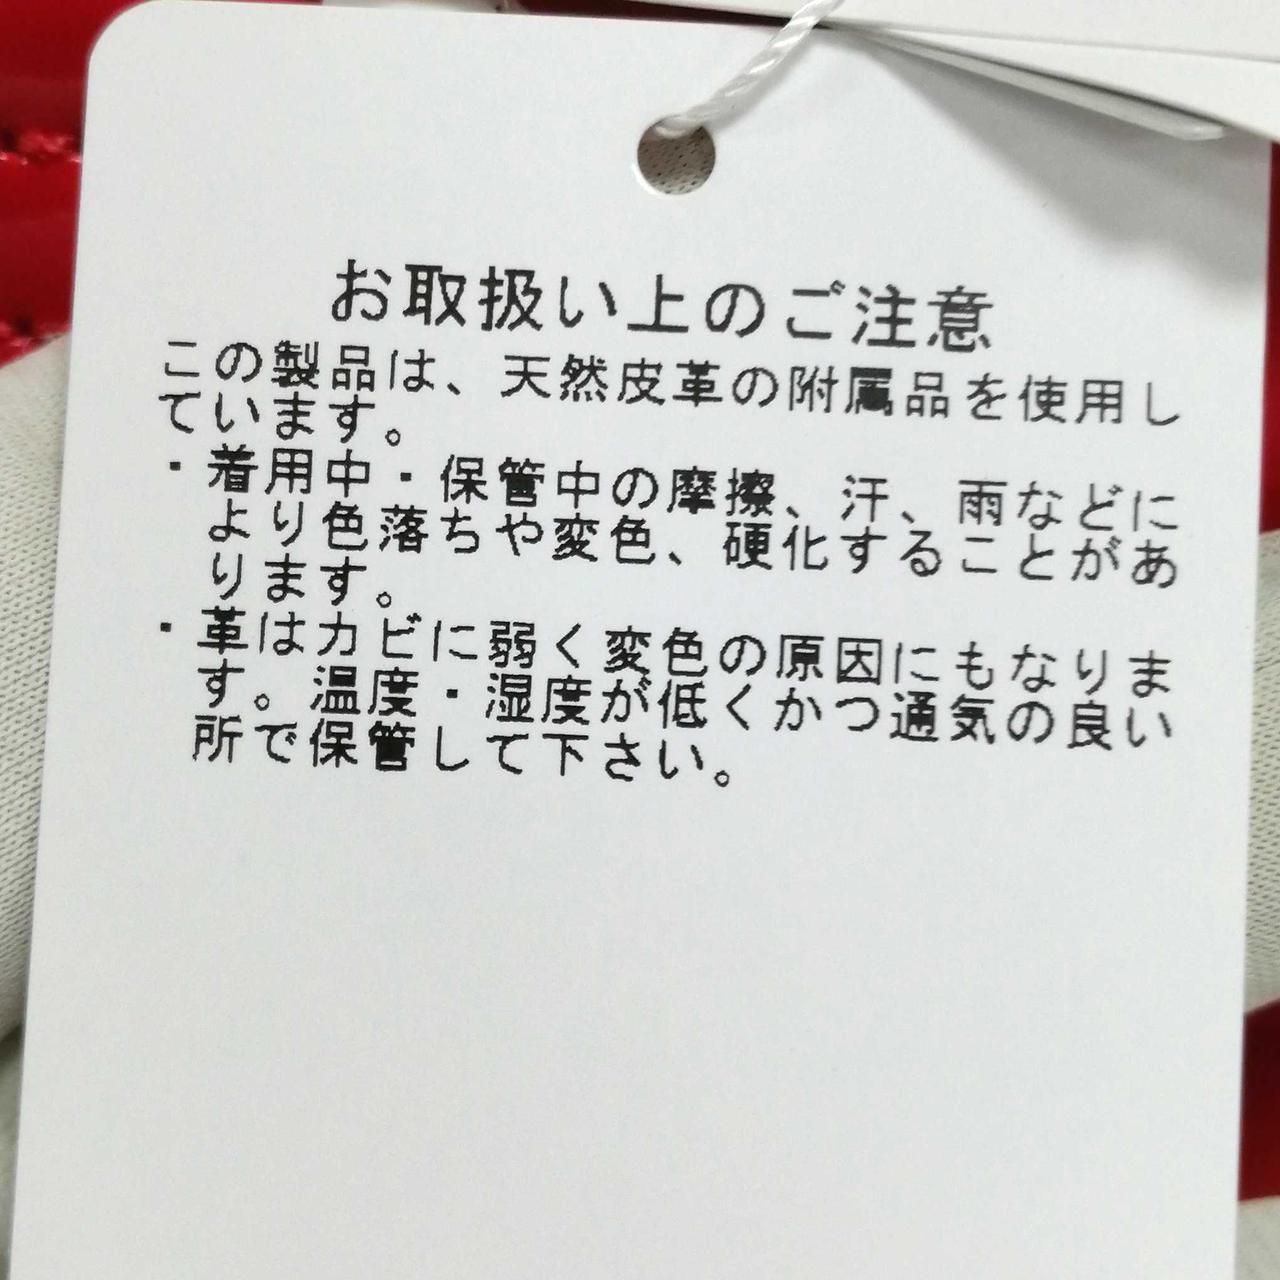 お取扱い上のご注意
この製品は、天然皮革の附属品を使用し
ています。
・着用中・保管中の摩擦、汗、雨などに
より色落ちや変色、硬化することがあ
ります。
・革はカビに弱く変色の原因にもなりま
す。温度・湿度が低くかつ通気の良い
所で保管して下さい。